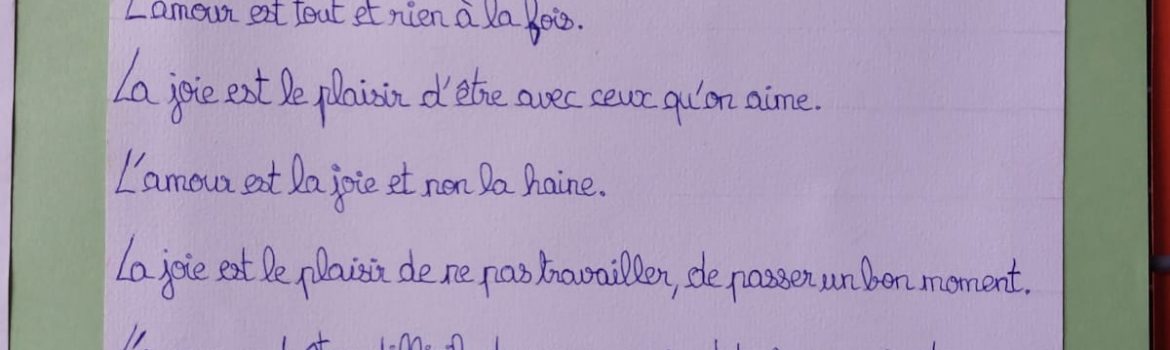 L'amour est tout et rien à la fois.
La joie est le plaisir d'être avec ceux qu'on aime.
L'amour est la joie et non la haine.
La joie est le plaisir de ne pas travailler, de passer un bon moment.